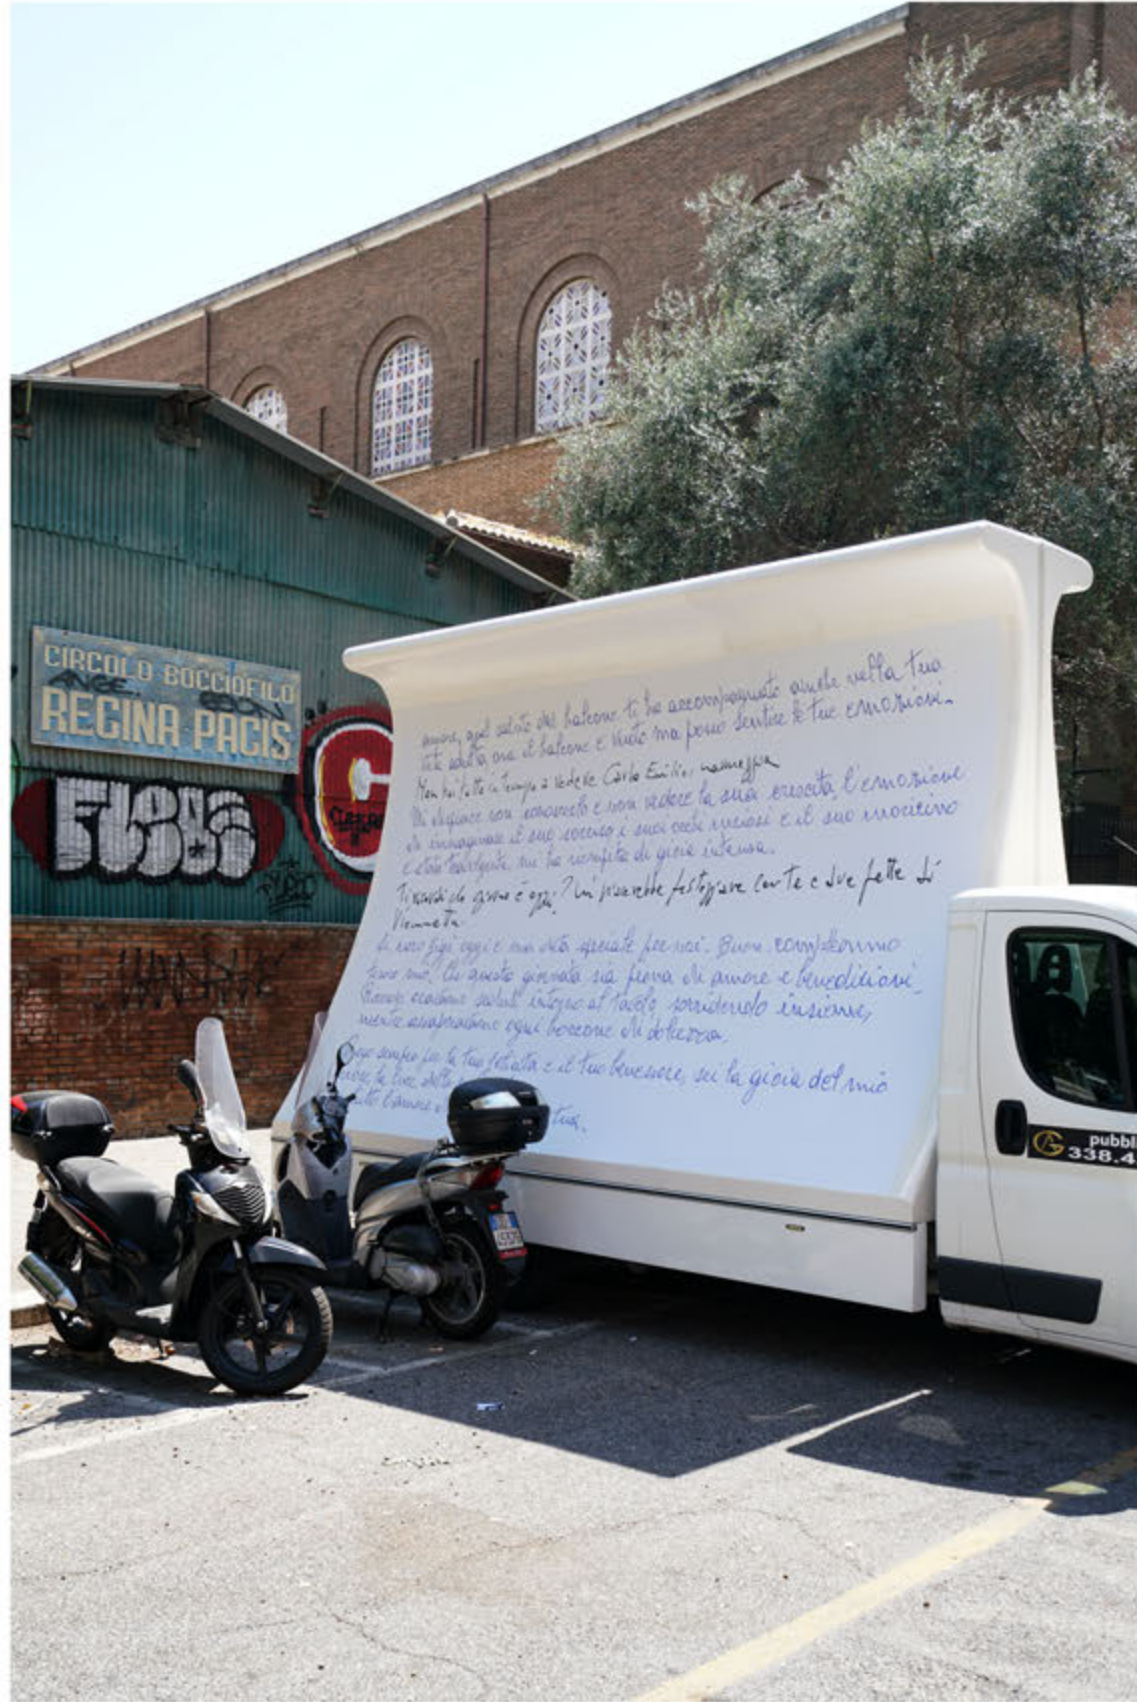 CIRCOLO BOCCIOFILO
REGINA PACIS
amore, quel saluto dal balcone ti ha accompagnato anche nella tua
vita adulta, ora il balcone è vuoto ma posso sentire le tue emozioni.
Non hai fatto in tempo a vedere Carlo Emilio,
Mi dispiace non conoscerlo e non vedere la sua crescita, l'emozione
di immaginare il suo sorriso i suoi occhi curiosi e il suo nasino
è stata travolgente, mi ha riempito di gioia intensa.
Ti ricordi che giorno è oggi? Mi piacerebbe festeggiare con te e due fette di
Viennetta.
oggi è una data speciale per noi. Buon compleanno
mio. Che questa giornata sia piena di amore e benedizioni.
seduti intorno al tavolo, sorridendo insieme,
mentre assaporiamo ogni boccone di dolcezza.
sempre per la tua felicità e il tuo benessere, sei la gioia del mio
la luce
tua.
pubbl
338.4